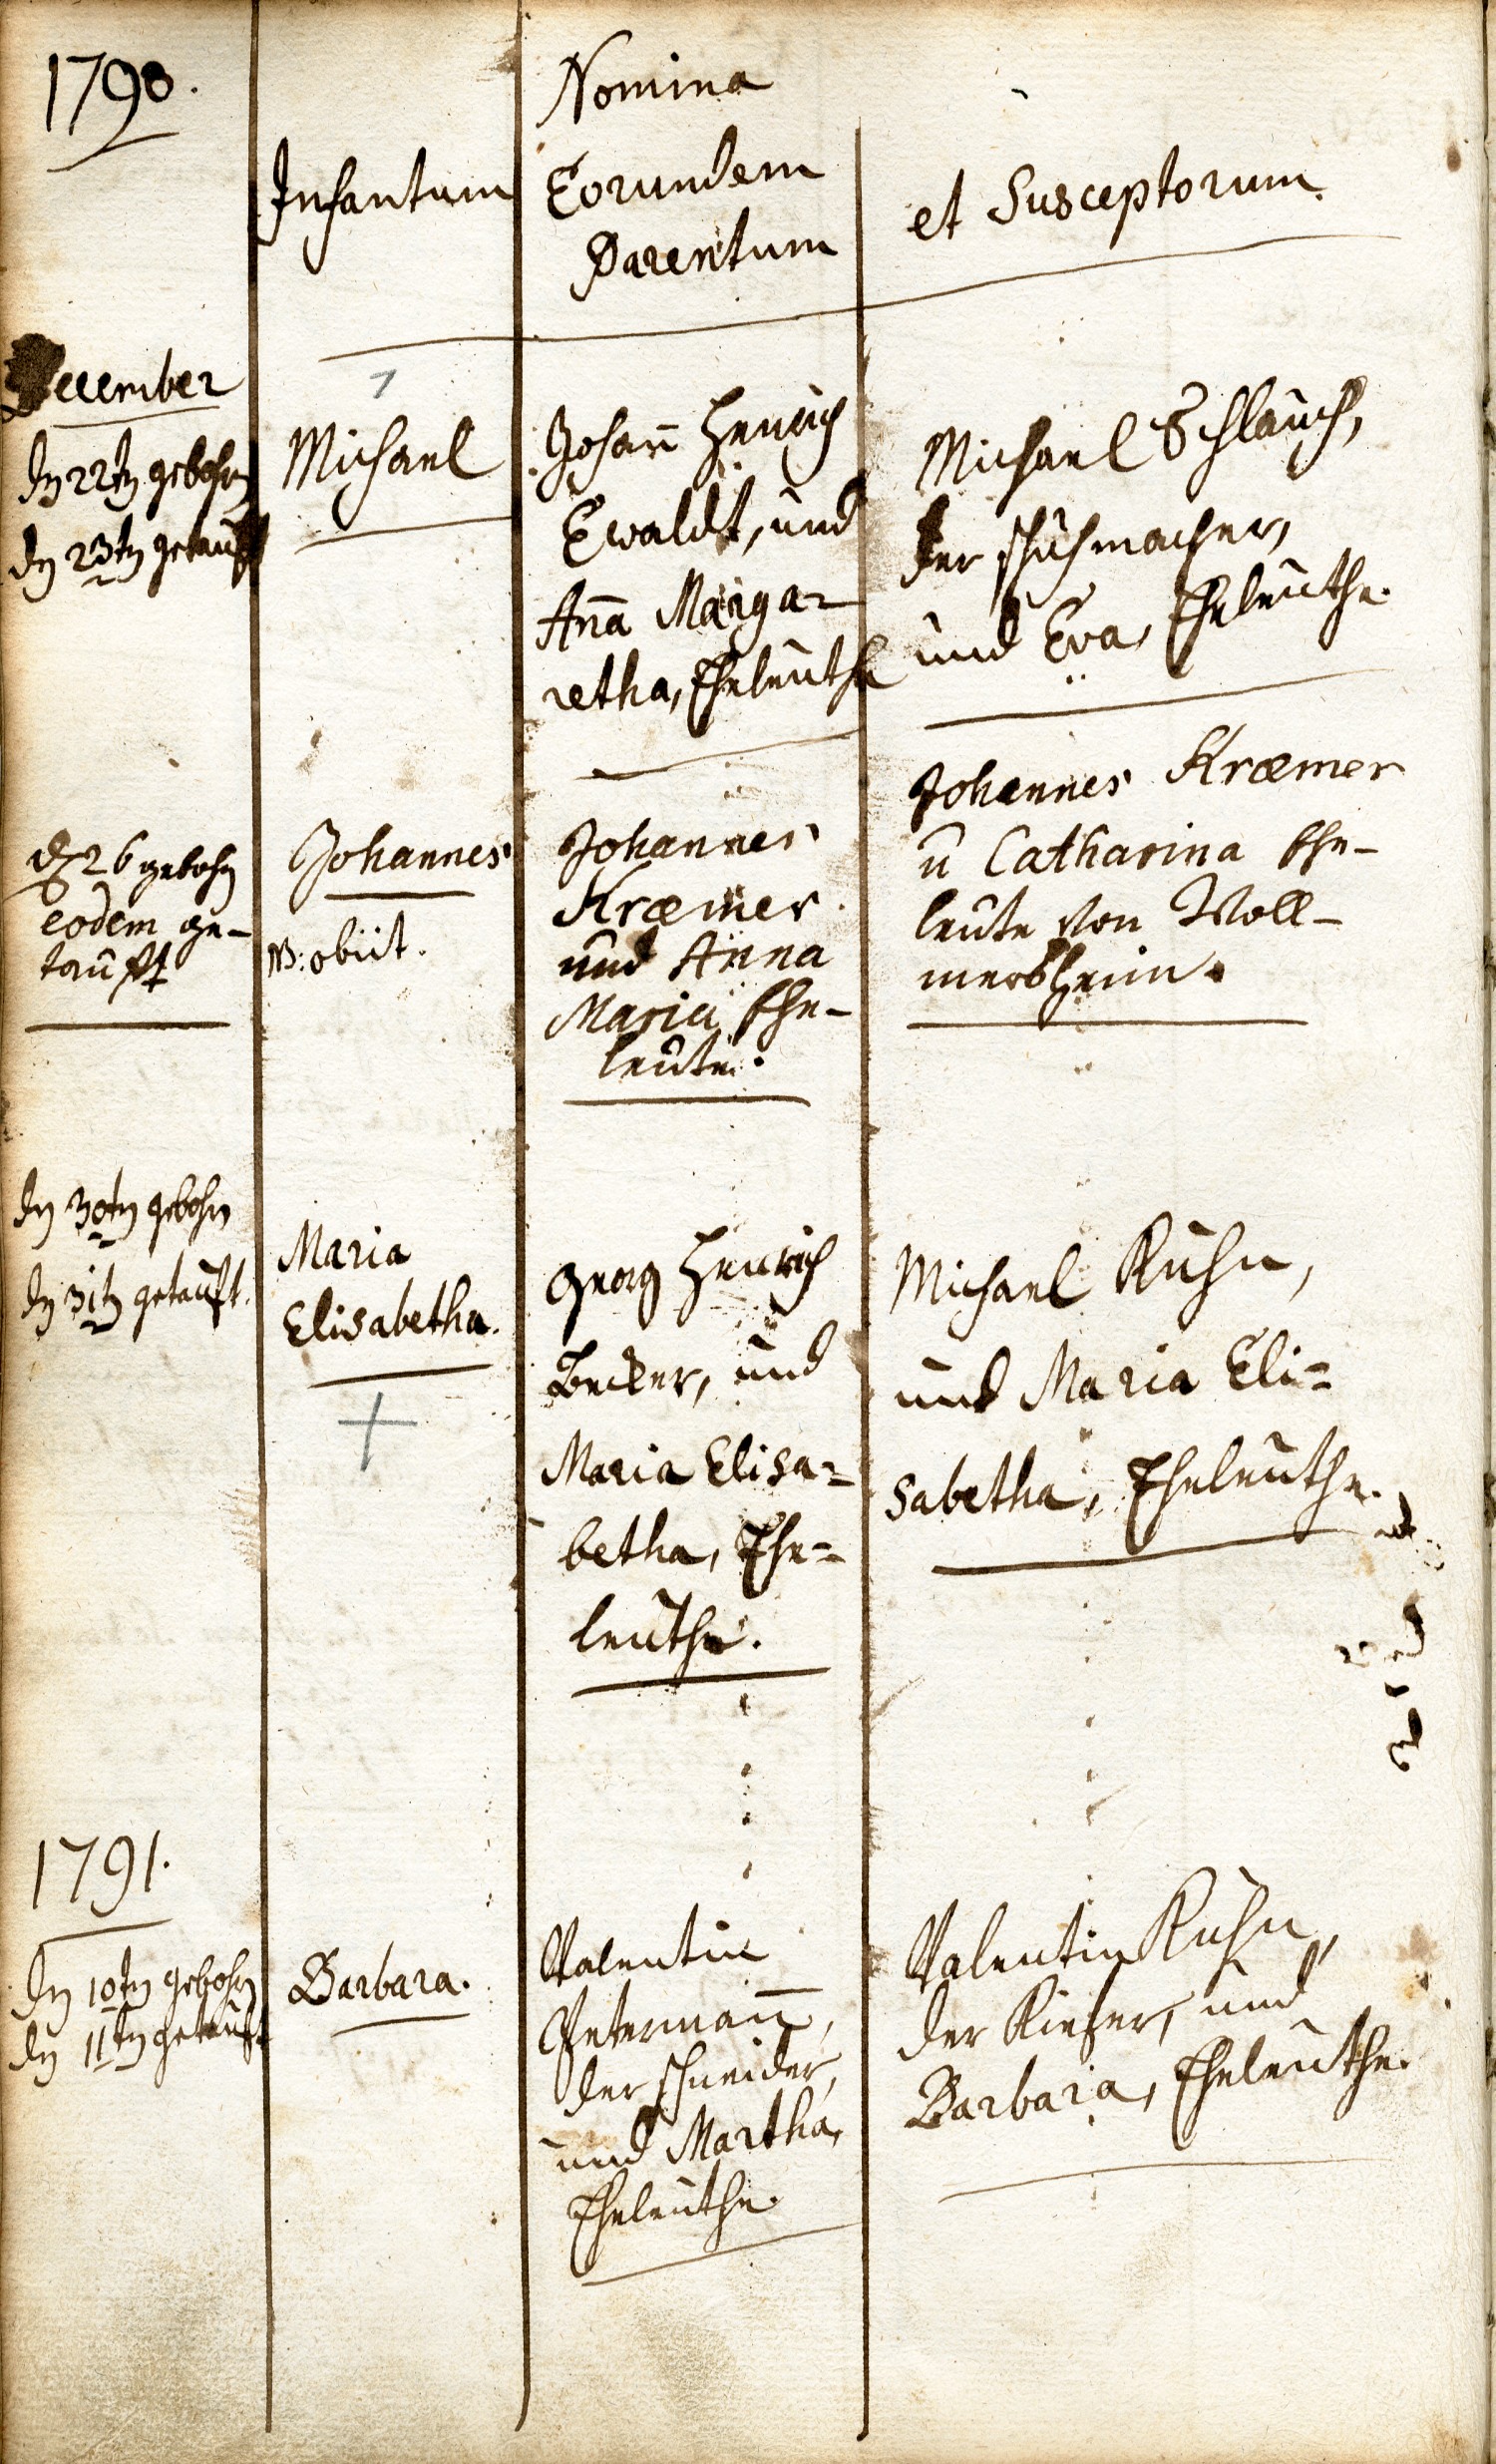 1790.
Nomina
Infantum
Eorundem
Parentum
et Susceptorum.
December
dn 22tn gebohrn
dn 23tn getauft
Michael
Johan̄ Henrich
Ewaldt, und
An̄a Marga=
retha, Eheleuthe
Michael Schlauch,
der schuhmacher,
und Eva, Eheleuthe.
d 26 gebohrn
eodem ge-
tauft
Johannes
NB: obiit.
Johannes
Kræmer
und Anna
Maria Ehe-
leute.
Johannes Kræmer
u Catharina Ehe-
leute von Woll-
mersheim.
dn 30tn gebohrn
dn 31tn getauft.
Maria
Elisabetha.
Georg Henrich
Becker, und
Maria Elisa=
betha, Ehe=
leuthe.
Michael Kuhn,
und Maria Eli=
sabetha, Eheleuthe.
1791.
dn 10tn gebohrn
dn 11tn getauft
Barbara.
Valentin
Peterman̄,
der schneider,
und Martha,
Eheleuthe.
Valentin Kuhn,
der Kiefer, und
Barbara, Eheleuthe.